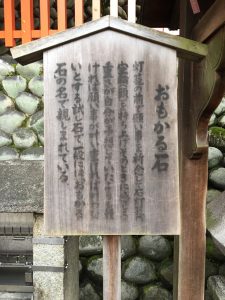 おもかる石
灯篭の前で願事を祈念し石灯篭の
空輪(頭)を持ち上げそのときに感じる
重さが、自分が予想していたよりも軽
ければ願い事が叶い、重ければ叶い難
いとする試し石で一般には「おもかる
石」の名で親しまれている